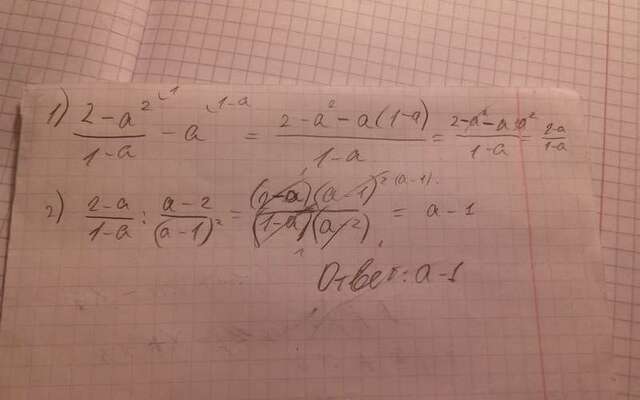 1) (2-a²)/(1-a) - a = (2-a²-a(1-a))/(1-a) = (2-a²-a+a²)/(1-a) = (2-a)/(1-a)
2) (2-a)/(1-a) : (a-2)/(a-1)² = ((2-a)(a-1)²)/((1-a)(a-2)) = a-1
Ответ: a-1